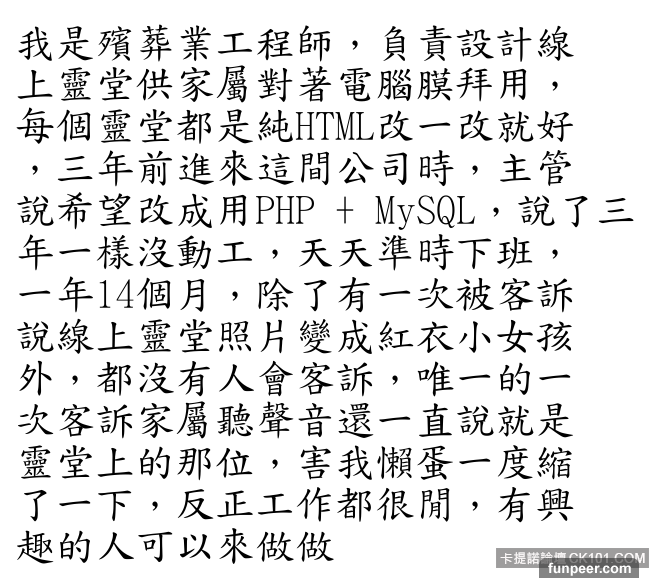 我是殯葬業工程師，負責設計線
上靈堂供家屬對著電腦膜拜用，
每個靈堂都是純HTML改一改就好
，三年前進來這間公司時，主管
說希望改成用PHP + MySQL，說了三
年一樣沒動工，天天準時下班，
一年14個月，除了有一次被客訴
說線上靈堂照片變成紅衣小女孩
外，都沒有人會客訴，唯一的一
次客訴家屬聽聲音還一直說就是
靈堂上的那位，害我懶蛋一度縮
了一下，反正工作都很閒，有興
趣的人可以來做做
卡提諾論壇 CK101.COM
funpeer.com